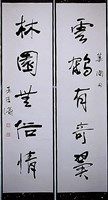 雲鶴有奇翼
林園無俗情